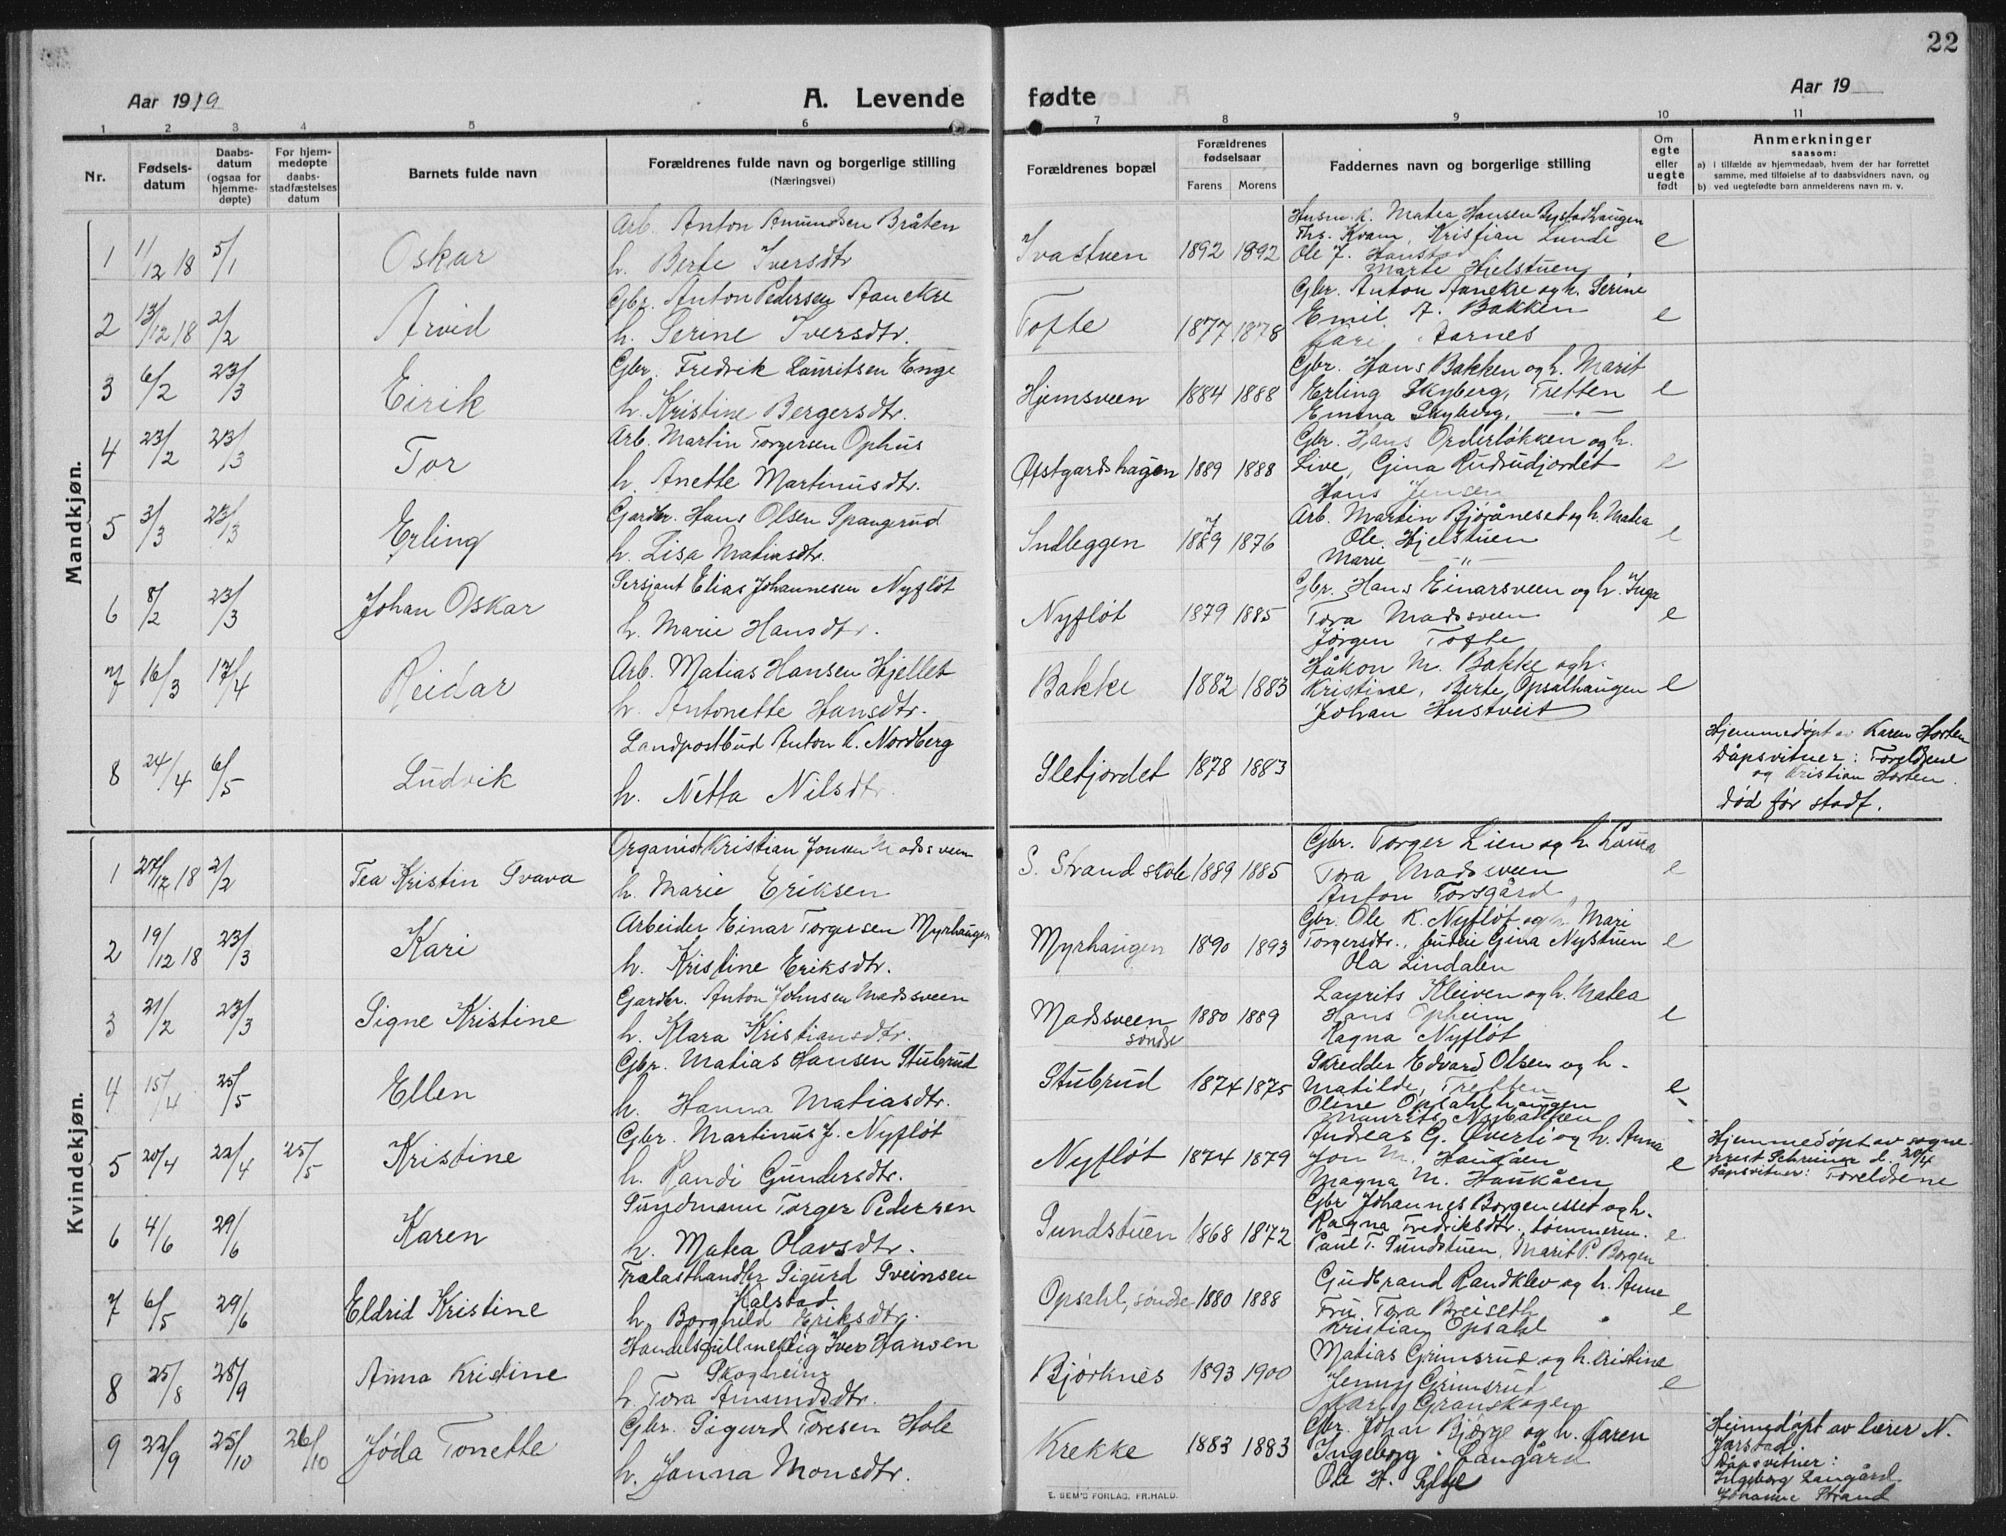 22
Aar 1919
A. Levende fødte
Aar 19
1 2 3 4 5 6 7 8 9 10 11
Nr.
Fødsels-datum
Daabs-datum (ogsaa for hjemme-døpte)
For hjem-medøpte daabs-stadfæstelses datum
Barnets fulde navn
Forældrenes fulde navn og borgerlige stilling
(Næringsvei)
Forældrenes bopæl
Forældrenes fødselsaar
Farens Morens
Faddernes navn og borgerlige stilling
Om egte eller uegte født
Anmerkninger
saasom:
a) i tilfælde av hjemmedaab, hvem der har forrettet samme, med tilføielse af to daabsvidners navn, og
b) ved uegtefødte barn anmelderens navn m. v.
Mandkjøn.
1 1/12 18 5/1 Oskar
Arb. Anton Amundsen Bråten
h. Berte Iversdtr
Ivastuen 1892 1892
Husm. k. Matea Hansen Bystadhaugen
Ths. Kvam, Kristian Lunde
Ole J. Hanstad
Marte Hjelstuen
e
2 13/12 18 2/2 Arvid
Gbr. Anton Pedersen Aanekre
h. Serine Iversdtr.
Tofte 1877 1878
Gbr. Anton Aanekre og h. Serine
Emil A. Bakken
Kari Aarnes
e
3 6/2 23/3 Eirik
Gbr. Fredrik Lauritsen Enge
h. Kristine Bergersdtr.
Hjemsveen 1884 1888
Gbr. Hans Bakken og h. Marit
Erling Skyberg, Tretten
Emma Skyberg, — " —
e
4 23/2 23/3 Tor
Arb. Martin Torgersen Ophus
h. Anette Martinusdtr.
Øfstgardshagen 1889 1888
Gbr. Hans Orderløkken og h.
Live, Gina Rudsudjordet
Hans Jensen
e
5 3/3 23/3 Erling
Gardbr. Hans Olsen Spangrud
h. Lisa Matiasdtr.
Sndleggen 1879 1876
Arb. Martin Bjøråneset og h. Matea
Ole Hjelstuen
Marie — " —
e
6 8/2 23/3 Johan Oskar
Sersjant Elias Johannesen Nyfløt
h. Marie Hansdtr.
Nyfløt 1879 1885
Gbr. Hans Einarsveen og h. Inga
Tora Madsveen
Jørgen Tofte
e
7 16/3 17/4 Reidar
Arb. Matias Hansen Hjellet
h. Antonette Hansdtr.
Bakke 1882 1883
Håkon M. Bakke og h.
Kristine, Berte Opsalhaugen
Johan Hustveit
e
8 24/4 6/5 Ludvik
Landpostbud Anton K. Nordberg
h. Netta Nilsdtr.
Sletjordet 1878 1883
Hjemmedøpt av Karen Horten
Dåpsvitner: Foreldrene
og Kristian Horten.
død før stadf.
Kvindekjøn.
1 27/12 18 2/2 Tea Kristin Svava
Organist Kristian Jonsen Madsveen
h. Marie Eriksen
S. Strand skole 1889 1885
Gbr. Torger Lien og h. Låma
Tora Madsveen
Anton Forsgård
e
2 19/12 18 23/3 Kari
Arbeider Einar Torgersen Myrhaugen
h. Kristine Eriksdtr.
Myrhaugen 1890 1893
Gbr. Ole K. Nyfløt og h. Mari
Torgersdtr., budeie Gina Nystuen
Ola Lindalen
e
3 21/2 23/3 Signe Kristine
Gardbr. Anton Johnsen Madsveen
h. Klara Kristiansdtr.
Madsveen søndre 1880 1889
Laurits Kleiven og h. Matea
Hans Opheim
Ragna Nyfløt
e
4 15/4 25/5 Ellen
Gbr. Matias Hansen Stubrud
h. Hanna Matiasdtr.
Stubrud 1874 1875
Skredder Edvard Olsen og h.
Matilde, Tretten
Oline Opsahlhaugen
Maurits Nybakken
e
5 20/4 22/4 25/5 Kristine
Gbr. Martinus J. Nyfløt
h. Randi Gundersdtr.
Nyfløt 1874 1879
Andreas G. Øverli og h. Anna
Jon M. Haukåen
Magna M. Haukåen
e
Hjemmedøpt av sogne-
prest Schreiner d. 20/4
Dåpsvitner: Foreldrene
6 4/6 29/6 Karen
Sundmann Torger Pedersen
h. Matea Olavsdtr.
Sundstuen 1868 1872
Gbr Johannes Borgenesset og h.
Ragna Fredriksdtr, tømmerm.
Paul T. Sundstuen, Marit P. Borgen
e
7 6/5 29/6 Eldrid Kristine
Trælasthandler Sigurd Sveinsen
Kalstad
h. Borghild Eriksdtr.
Opsahl, søndre 1880 1888
Gudbrand Randklev og h. Anne
Fru Tora Breiseth
Kristian Opsahl
e
8 25/8 28/9 Anna Kristine
Handelsfullmektig Iver Hansen
Skogheim
h. Tora Amundsdtr.
Bjørknes 1893 1900
Matias Grimsrud og h. Kristine
Jenny Grimsrud
Karl Granskogen
e
9 22/9 25/10 26/10 Jøda Tonette
Gbr. Sigurd Toresen Hole
h. Janna Monsdtr.
Krekke 1883 1883
Gbr. Johan Bjørge og h. Karen
Ingeborg Langård
Ole H. Sylje
Heimedøpt av lærer N.
Jarstad
Dåpsvitner:
Ingeborg Langård
Johanne Strand
E. SEM'S FORLAG, FR.HALD.